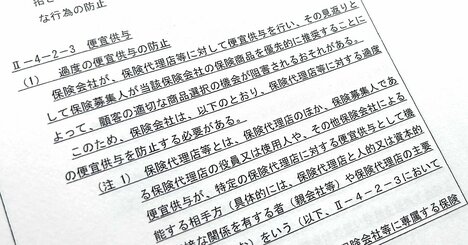 な行為の防止
Ⅱ－４－２－３　便宜供与
（１）　過度の便宜供与の防止
保険会社が、保険代理店等に対して便宜供与を行い、その見返りと
して保険募集人が当該保険会社の保険商品を優先的に推奨することに
よって、顧客の適切な商品選択の機会が阻害されるおそれがある。
このため、保険会社は、以下のとおり、保険代理店等に対する過度
の便宜供与を防止する必要がある。
（注１）　保険代理店等とは、保険代理店のほか、保険募集人であ
る保険代理店の役員又は使用人や、その他保険会社による
便宜供与が、特定の保険代理店に対する便宜供与として機
能する相手方（具体的には、保険代理店と人的又は資本的
接な関係を有する者（親会社等）や保険代理店の主要
など）をいう（以下、Ⅱ－４－２－３において
会社等に専属する保険